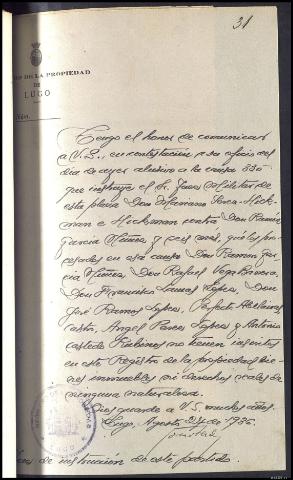 31
DE LA PROPIEDAD
DE
LUGO
Núm.
Tengo el honor de comunicar
a V.S., en contestación a su oficio del
día de ayer relativo a la causa 530
que instruye el Sr. Juez Militar de
esta plaza Don Mariano
e contra Don Ramón
García Núñez y seis más, que los pro-
cesados en esa causa Don Ramon Gar-
cía Núñez, Don Rafael Vega Barrera,
Don Francisco Lamas López, Don
José Ramos López, Perfecto Abelairas
Castro, Angel Ponce Lopez y Antonio
no tienen inscritos
en este Registro de la propiedad bie-
nes inmuebles ni derechos reales de
ninguna naturaleza.
Dios guarde a V.S. muchos años.
Lugo, Agosto 24 de 1936.
de instrucción de este partido.